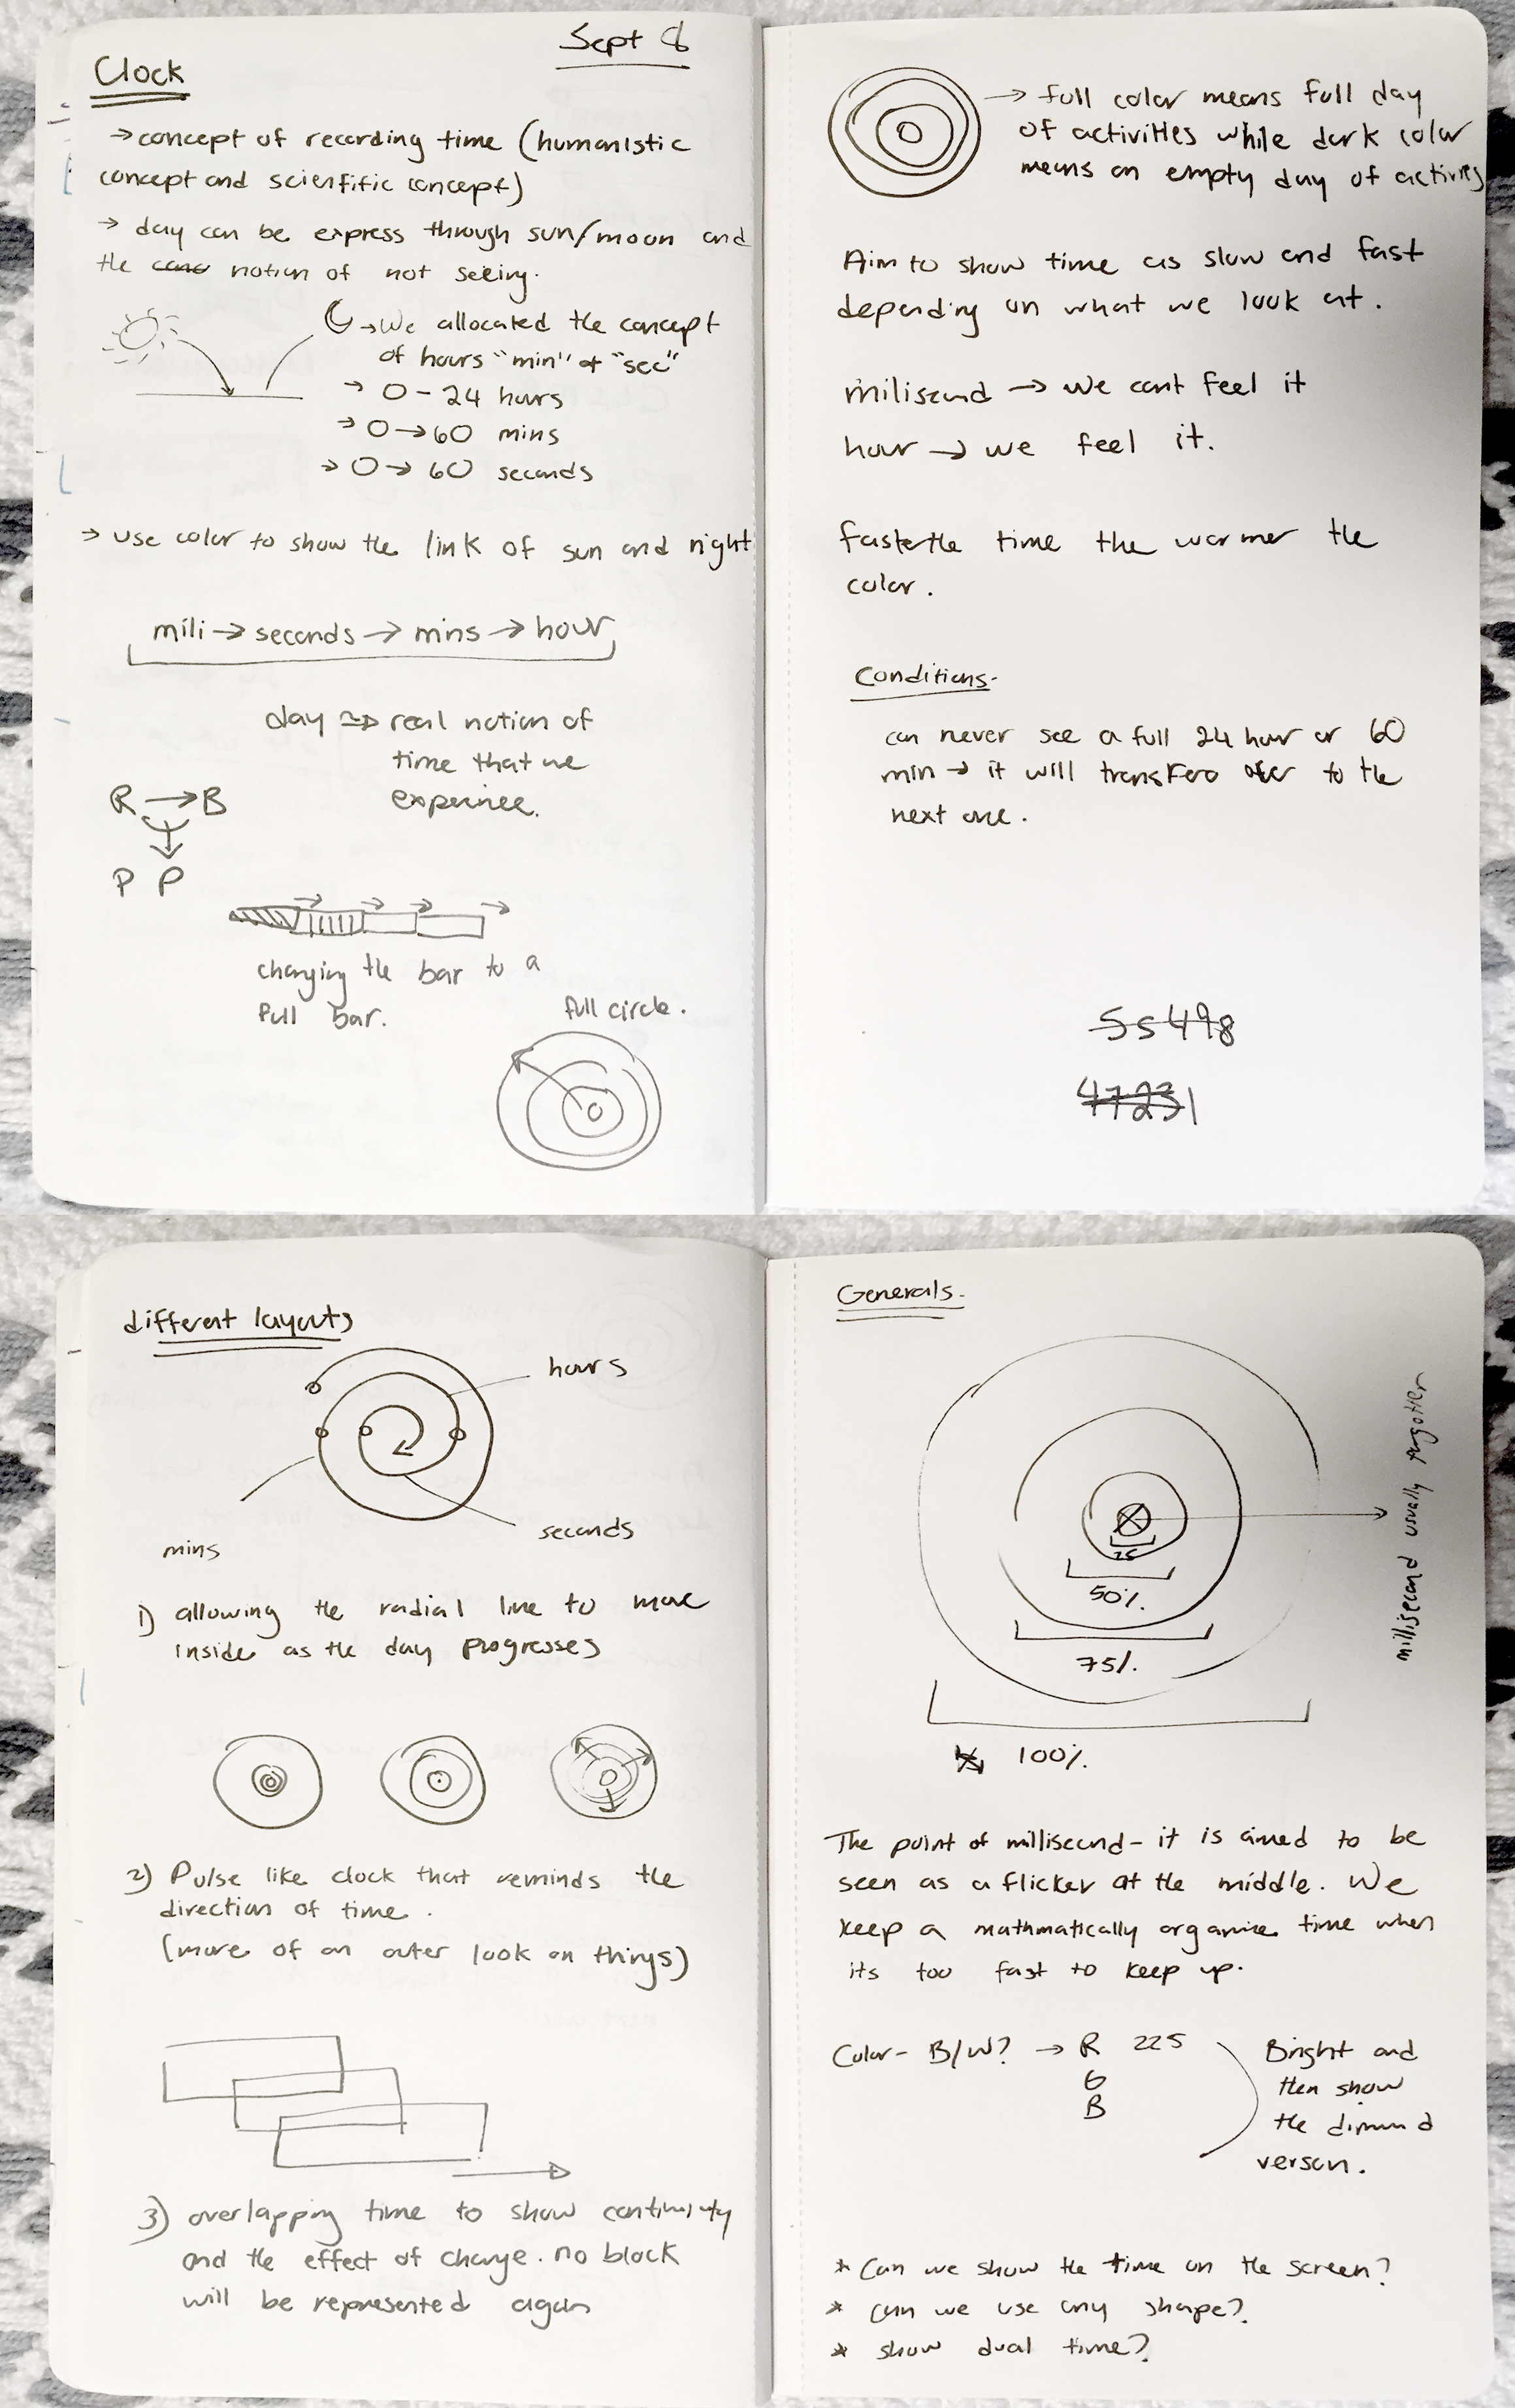 Sept 8
Clock
→ concept of recording time (humanistic
concept and scientific concept)
→ day can be express through sun/moon and
the notion of not seeing.
→ We allocated the concept
of hours "min" & "sec"
→ 0 - 24 hours
→ 0 → 60 mins
→ 0 → 60 seconds
→ use color to show the link of sun and night
mili → seconds → mins → hour
day ⇒ real notion of
time that we
R → B
P P
changing the bar to a
full bar.
full circle.
→ full color means full day
of activities while dark color
means an empty day of
Aim to show time as slow and fast
depending on what we look at.
→ we cant feel it
hour → we feel it.
faster the time the warmer the
color.
Conditions-
can never see a full 24 hour or 60
min → it will to the
next one.
55498
47231
different layouts
hours
seconds
mins
1) allowing the radial line to move
inside as the day progresses
2) Pulse like clock that reminds the
direction of time.
(more of an outer look on things)
3) overlapping time to show continuity
and the effect of change. no block
will be represented again
Generals.
25
50%.
75%.
100%.
millisecond usually forgotten
The point of millisecond - it is aimed to be
seen as a flicker at the middle. We
keep a mathmatically organize time when
its too fast to keep up.
Color - B/W? → R 225
G
B
Bright and
then show
the
verson.
* Can we show the time on the screen?
* can we use any shape?
* show dual time?